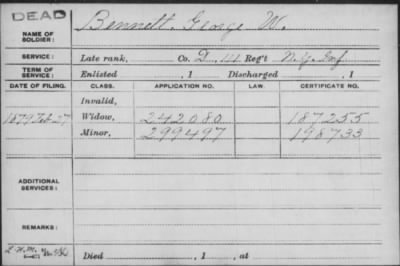 DEAD
NAME OF SOLDIER: Bennett, George W.
SERVICE: Late rank, Co. D, 111 Reg't N.Y. Inf
TERM OF SERVICE: Enlisted , 1 Discharged , 1
DATE OF FILING. CLASS. APPLICATION NO. LAW. CERTIFICATE NO.
Invalid,
1879 Feb 27 Widow, 242080 187255
Minor, 299497 198733
ADDITIONAL SERVICES:
REMARKS:
Died , 1 , at